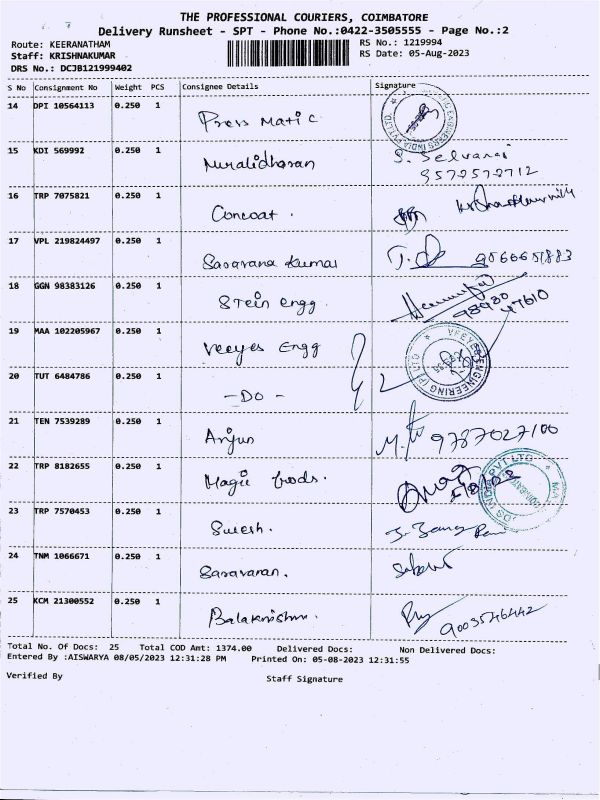 THE PROFESSIONAL COURIERS, COIMBATORE
Delivery Runsheet - SPT - Phone No.:0422-3505555 - Page No.:2
Route: KEERANATHAM RS No.: 1219994
Staff: KRISHNAKUMAR RS Date: 05-Aug-2023
DRS No.: DCJB121999402
S No Consignment No Weight PCS Consignee Details Signature
14 DPI 10564113 0.250 1 Press Matic
15 KDI 569992 0.250 1 Muralidharan S. Selvaraj
9572572712
16 TRP 7075821 0.250 1 Concoat.
17 VPL 219824497 0.250 1 Saravana Kumar 9566651883
18 GGN 98383126 0.250 1 Stein engg. 98930
47610
19 MAA 102205967 0.250 1 Veeyes Engg
20 TUT 6484786 0.250 1 -DO-
21 TEN 7539289 0.250 1 Arjun 9787027100
22 TRP 8182655 0.250 1 Magic foods.
23 TRP 7570453 0.250 1 Suresh.
24 TNM 1066671 0.250 1 Saravanan.
25 KCM 21300552 0.250 1 Balakrishnan 9003546442
Total No. Of Docs: 25 Total COD Amt: 1374.00 Delivered Docs: Non Delivered Docs:
Entered By :AISWARYA 08/05/2023 12:31:28 PM Printed On: 05-08-2023 12:31:55
Verified By Staff Signature